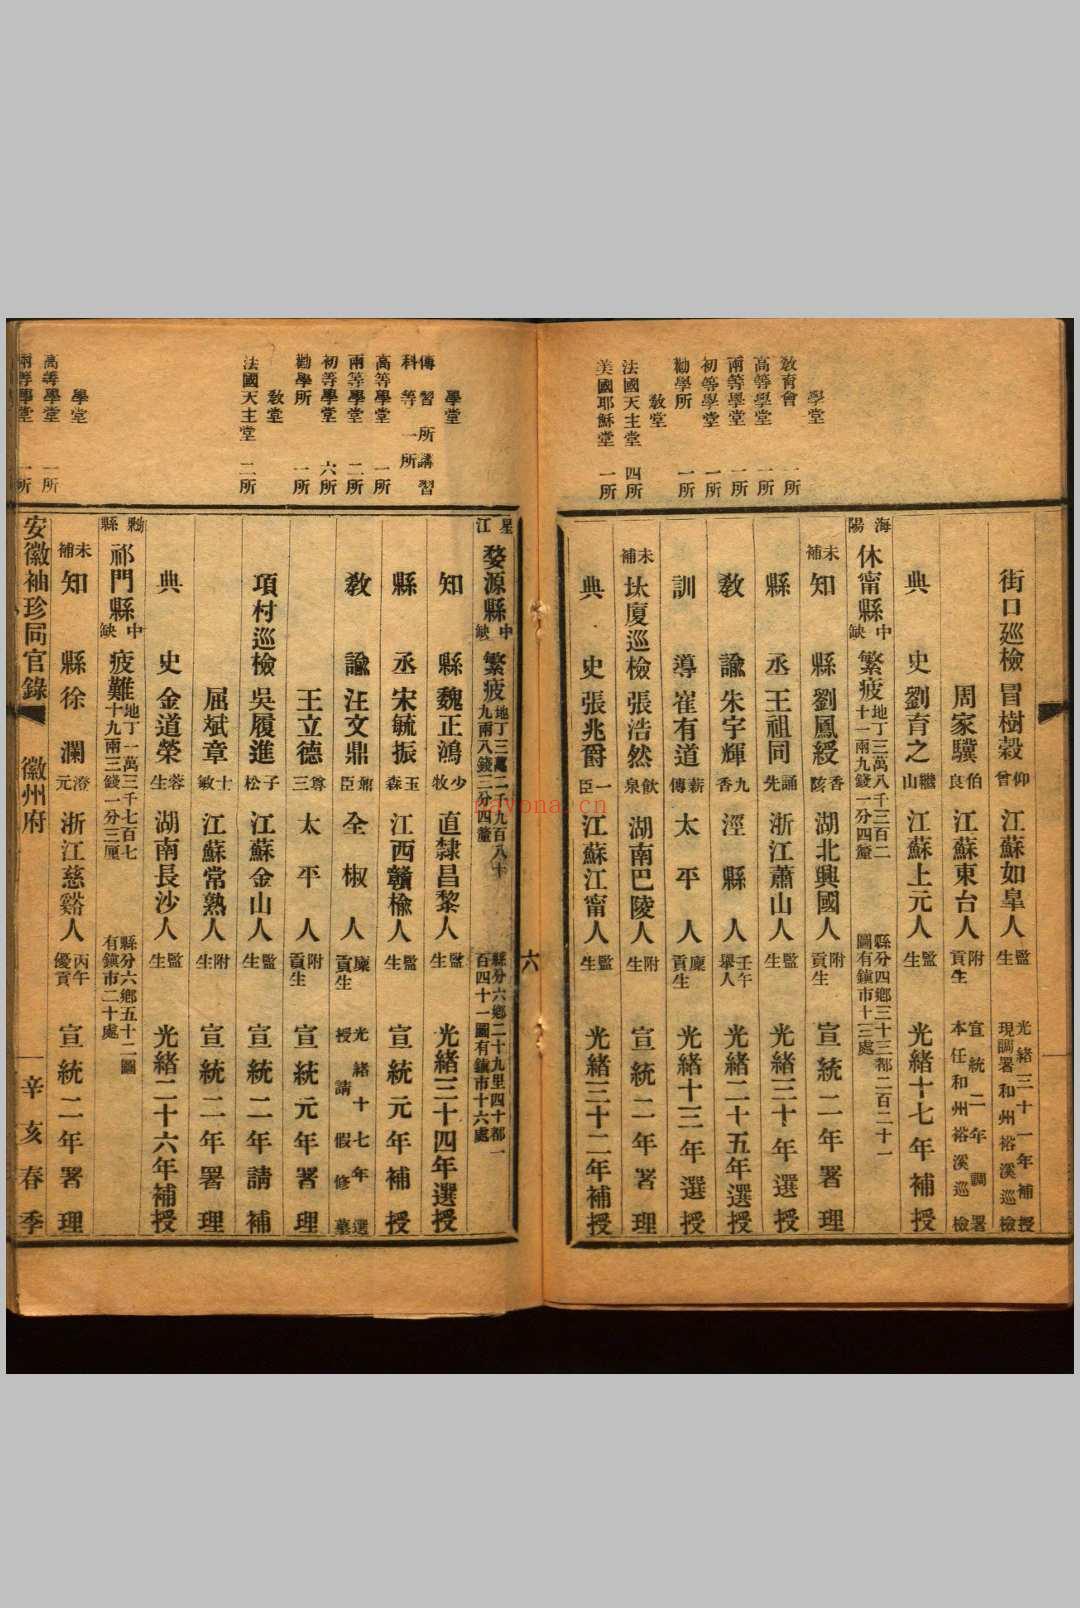 街口廵檢 冒樹穀 仰曾 江蘇如皐人 監生 光緒三十一年補授現調署和州裕溪巡檢
周家驥 伯良 江蘇東台人 附貢生 宣統二年調署本任和州裕溪巡檢
典史 劉育之 繼山 江蘇上元人 監生 光緒十七年補授
海陽 休甯縣 中缺 繁疲 地丁三萬八千三百二十一兩九錢一分四釐 縣分四鄉三十三都二百二十一圖有鎮市十三處
未補 知縣 劉鳳綬 香陔 湖北興國人 附貢生 宣統二年署理
縣丞 王祖同 誦先 浙江蕭山人 監生 光緒三十年選授
教諭 朱宇輝 九香 涇縣人 壬午舉人 光緒二十五年選授
訓導 崔有道 薪傳 太平人 廩貢生 光緒十三年選授
未補 㘵廈巡檢 張浩然 飲泉 湖南巴陵人 附生 宣統二年署理
典史 張兆爵 一臣 江蘇江甯人 監生 光緒三十二年補授
學堂
敎育會 一所
高等學堂 一所
兩等學堂 一所
初等學堂 一所
勸學所 一所
敎堂
法國天主堂 四所
美國耶穌堂 一所
六
星江 婺源縣 中缺 繁疲 地丁三萬二千九百八十九兩八錢三分四釐 縣分六鄉二十九里四十都一百四十一圖有鎮市十六處
知縣 魏正鴻 少牧 直隸昌黎人 監生 光緒三十四年選授
縣丞 宋毓振 玉森 江西贛榆人 監生 宣統元年補授
敎諭 汪文鼎 鼐臣 全椒人 廩貢生 光緒十七年選授請假修墓
王立德 尊三 太平人 附貢生 宣統元年署理
項村巡檢 吳履進 子松 江蘇金山人 監生 宣統二年請補
屈斌章 士敏 江蘇常熟人 附生 宣統二年署理
典史 金道榮 蓉生 湖南長沙人 監生 光緒二十六年補授
黝縣 祁門縣 中缺 疲難 地丁一萬三千七百七十九兩三錢一分三厘 縣分六鄉五十二圖有鎮市二十處
未補 知縣 徐瀾 澄元 浙江慈谿人 丙午優貢 宣統二年署理
安徽袖珍同官錄 徽州府 辛亥春季
學堂
傳習所講習科等一所
高等學堂 一所
兩等學堂 二所
初等學堂 六所
勸學所 一所
敎堂
法國天主堂 二所
學堂
高等學堂 一所
兩等學堂 一所
nayona.cn